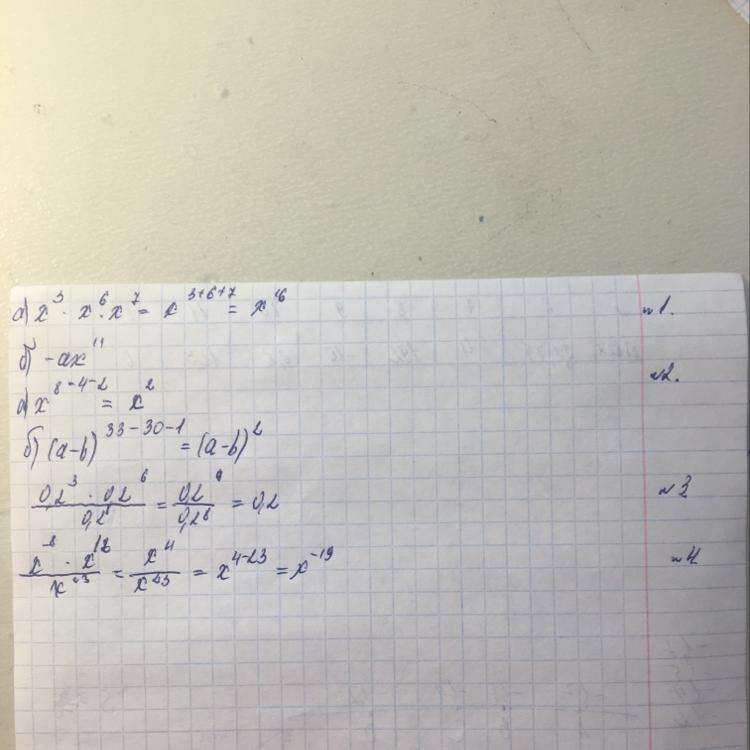 а) x³ · x⁶ · x⁷ = x³⁺⁶⁺⁷ = x¹⁶ №1.
б) -ax¹¹
а) x⁸⁻⁴⁻² = x² №2.
б) (a-b)³³⁻³⁰⁻¹ = (a-b)²
0,2³ · 0,2⁶ / 0,2⁸ = 0,2⁹ / 0,2⁸ = 0,2 №3
x⁻⁸ · x¹² / x²³ = x⁴ / x²³ = x⁴⁻²³ = x⁻¹⁹ №4